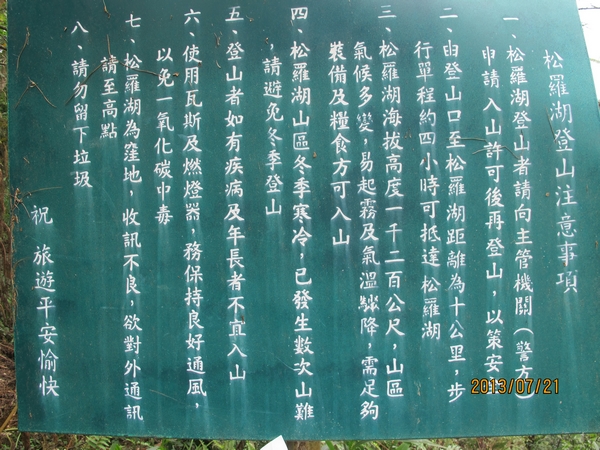 松羅湖登山注意事項
一、松羅湖登山者請向主管機關（警方）
申請入山許可後再登山，以策安
二、由登山口至松羅湖距離為十公里，步
行單程約四小時可抵達 松羅湖
三、松羅湖海拔高度一千二百公尺，山區
氣候多變，易起霧及氣溫驟降，需足夠
裝備及糧食方可入山
四、松羅湖山區冬季寒冷，已發生數次山難
，請避免冬季登山
五、登山者如有疾病及年長者不宜入山
六、使用瓦斯及燃燈器，務保持良好通風，
以免一氧化碳中毒
七、松羅湖為窪地，收訊不良，欲對外通訊
請至高點
八、請勿留下垃圾
祝 旅遊平安愉快
2013/07/21